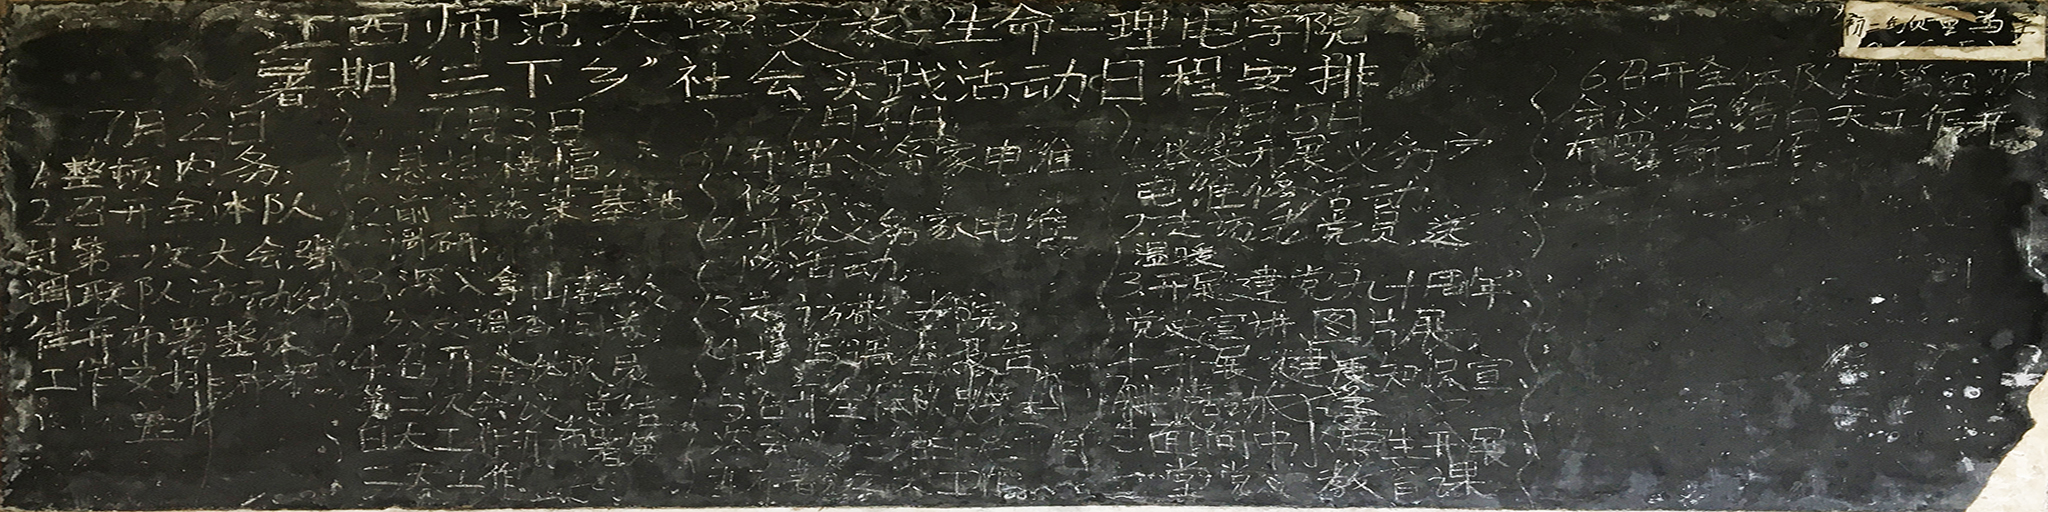 江西师范大学文旅-生命-理电学院
暑期"三下乡"社会实践活动日程安排
7月2日
1.整顿内务;
2.召开全体队
员第一次大会,强
调联队活动纪
律,并布署整体
工作安排
7月3日
1.悬挂横幅;
2.前往蔬菜基地
调研;
3.深入拿山
调查问卷
4.召开全体队员
第二次会议,总结
白天工作,并布署第
二天工作
7月4日
1.布署义务家电维
修点
2.开展义务家电维
修活动
3.走访敬老院
报告
5.召开全体队
工作
7月5日
1.继续开展义务家
电维修活动
2.走访老党员,送
温暖
3.开展"建党九十周年"
党史宣讲图片展
4.开展健康知识宣
5.面向中小学生开展
一堂党史教育课
6.召开全体队员第四次
会议,总结白天工作,并
布署新工作